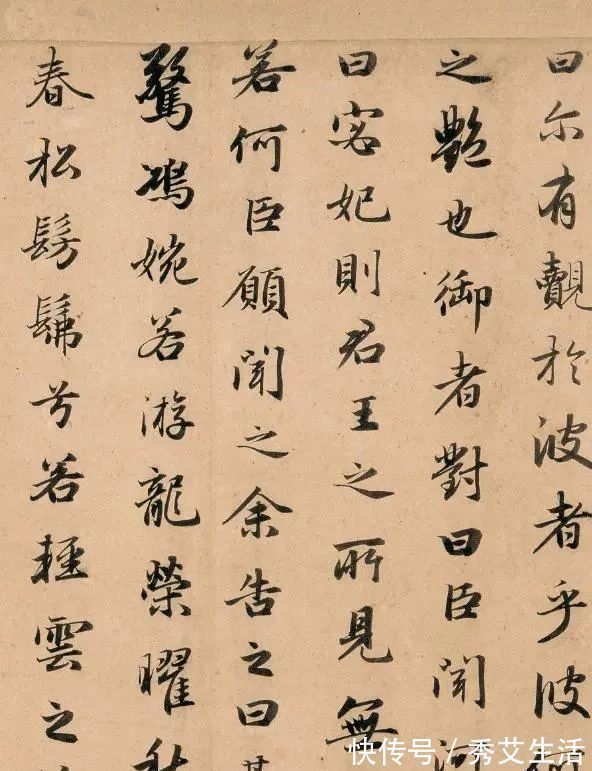 曰尓有覿於彼者乎彼
之艷也御者對曰臣聞河
曰宓妃則君王之所見無
若何臣願聞之余告之曰其
驚鴻婉若游龍榮曜秋
春松髣髴兮若輕雲之
快传号／秀艾生活